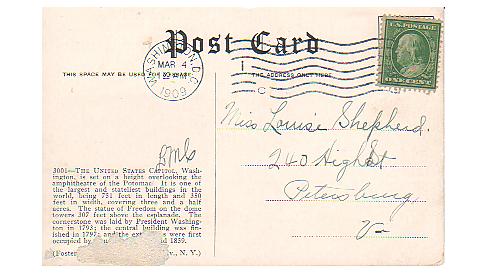 Post Card
WASHINGTON, D.C.
MAR 4
1909
U.S. POSTAGE
ONE CENT
THIS SPACE MAY BE USED FOR MESSAGE.
THE ADDRESS ONLY HERE.
Miss Louise Shepherd.
240 High St
Petersburg
Va
3001—THE UNITED STATES CAPITOL, Wash-
ington, is set on a height overlooking the
amphitheatre of the Potomac. It is one of
the largest and stateliest buildings in the
world, being 751 feet in length and 350
feet in width, covering three and a half
acres. The statue of Freedom on the dome
towers 307 feet above the esplanade. The
cornerstone was laid by President Washing-
ton in 1793; the central building was fin-
ished in 1797; and the were first
occupied by 1859.
(Foster N. Y.)